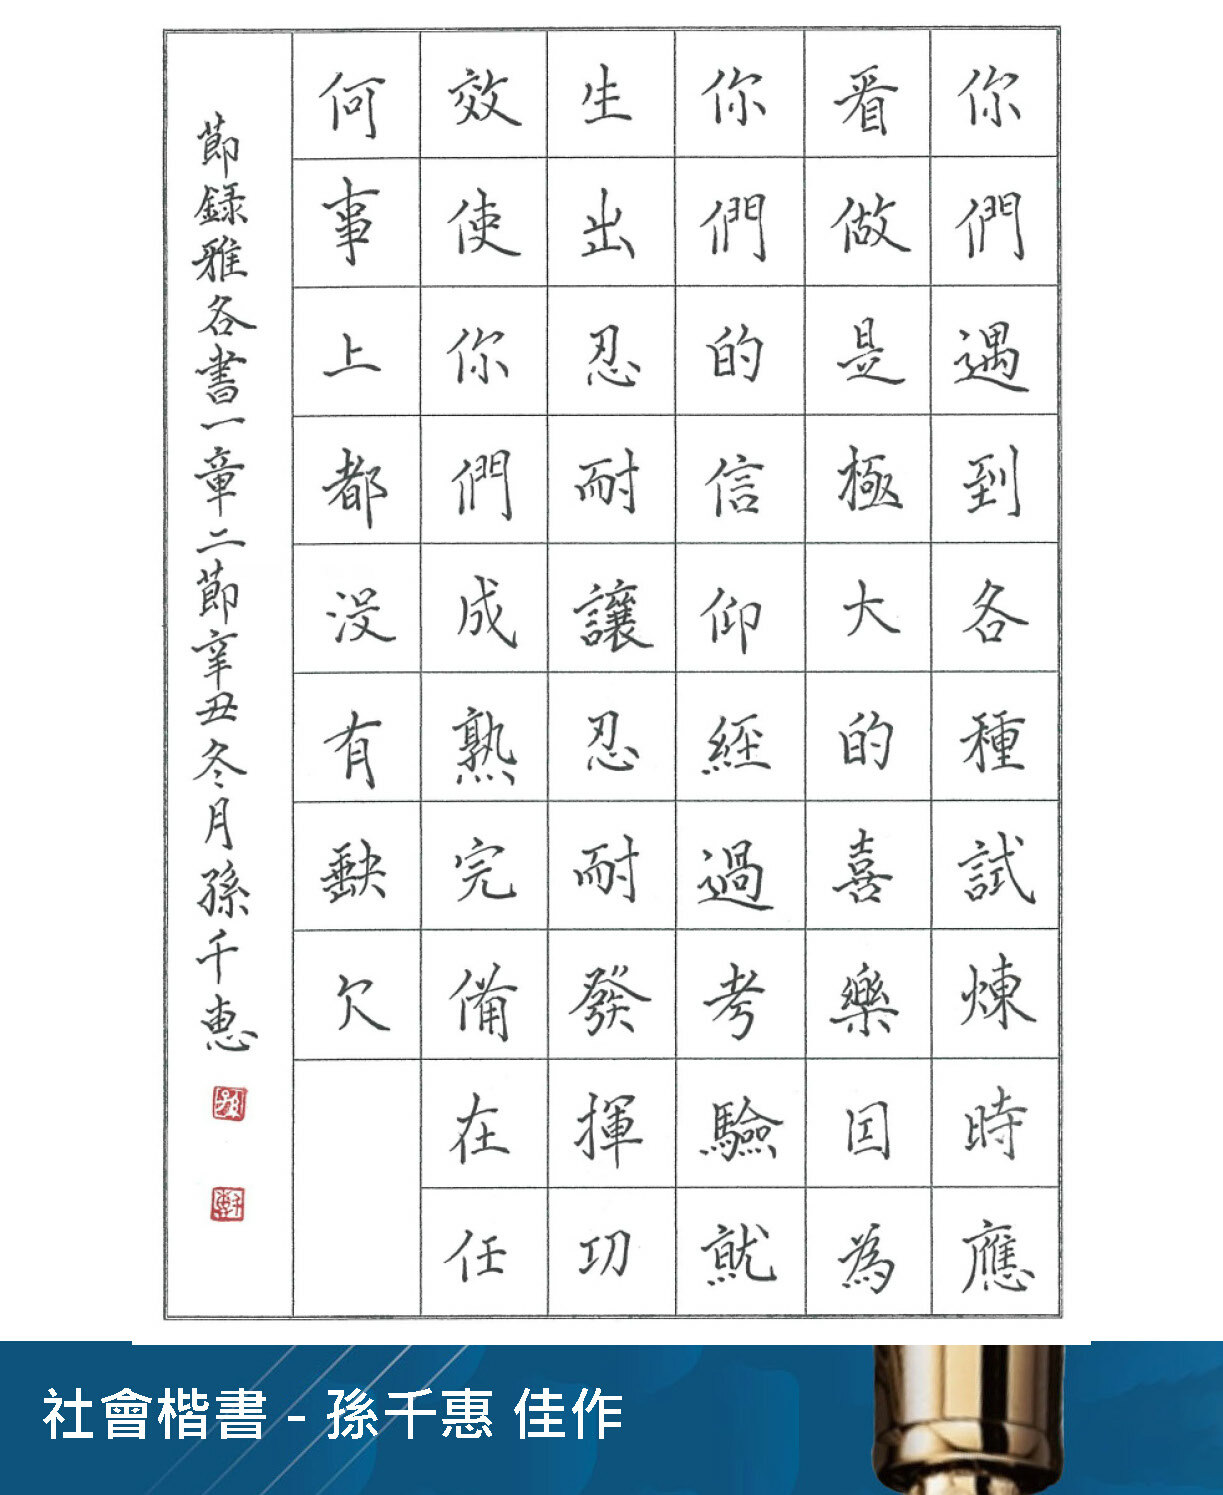 你們遇到各種試煉時應
看做是極大的喜樂因為
你們的信仰經過考驗就
生出忍耐讓忍耐發揮功
效使你們成熟完備在任
何事上都沒有缺欠
節錄雅各書一章二節辛丑冬月孫千惠
社會楷書 - 孫千惠 佳作